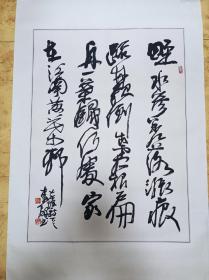 野水参差落涨痕
疏林欹倒出霜根扁
舟一棹归何处家
在江南黄叶村